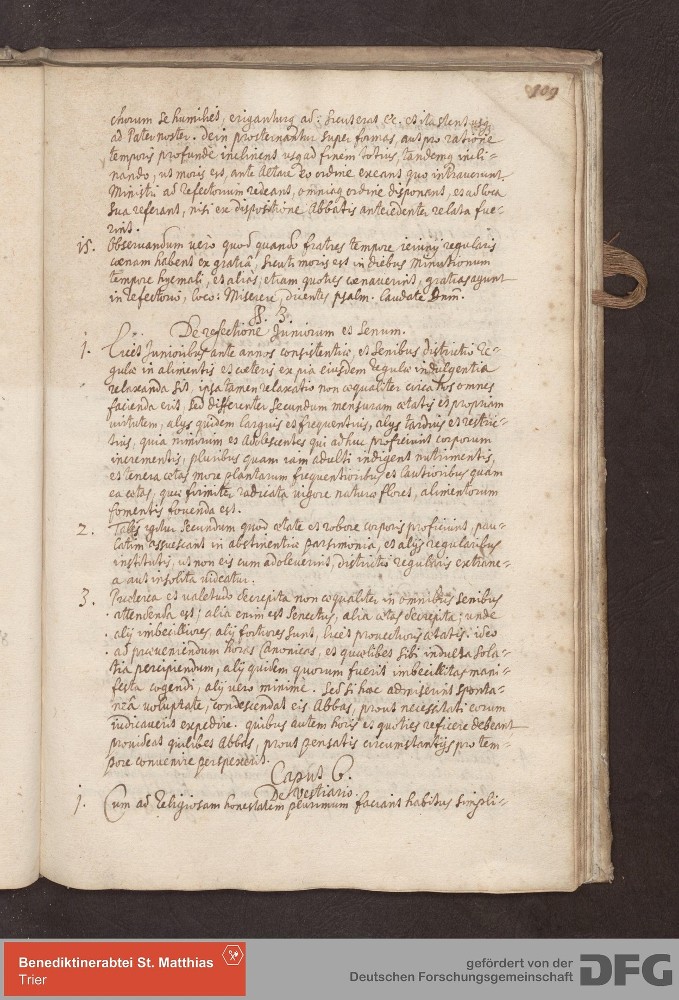 109
chorum se humiliet, erigantur ad: Sicut erat &c. et ita stent usq.
ad Pater noster. Dein prosternantur super formas, aut pro ratione
temporis profunde inclinent usq ad finem totius, tandemq incli-
nando, ut moris est, ante Altare eo ordine exeant quo intraverunt
Ministri ad refectorium redeant, omniaq ordine disponant, et ad loca
sua referant, nisi ex dispositione Abbatis antecedenter relata fue-
rint.
15. Observandum vero quod quando fratres tempore ieiunij regularis
cœnam habent ex gratiâ, sicuti moris est in diebus Minutionum
tempore hyemali, et alias, etiam quoties cœnaverint, gratias agunt
in refectorio, loco: Miserere, dicentes psalm. Laudate Dnm.
§. 3.
De refectione Juniorum et Senum.
1. Licet Junioribus ante annos consistentiæ et Senibus districtio re-
gulæ in alimentis et cœteris ex pia eiusdem regulæ indulgentia
relaxanda sit, ipsa tamen relaxatio non œqualiter circa hos omnes
facienda erit, sed differenter secundum mensuram œtatis et propriam
virtutem, alijs quidem largius et frequentius, alijs tardius et restric-
tius, quia nimirum et Adolescentes qui adhuc proficiunt corporum
incrementis, pluribus quam iam adulti indigent nutrimentis,
et tenera œtas more plantarum frequentioribus et lautioribus quam
ea œtas, quæ firmiter radicata vigore naturæ flores, alimentorum
fomentis fovenda est.
2. Tales igitur secundum quod œtate et robore corporis proficiunt, pau-
latim assuescant in abstinentiæ parsimonia, et alijs regularibus
institutis, ut non eis cum adoleverint, districtio regularis extrane-
a aut insolita videatur.
3. Præterea et valetudo decrepita non œqualiter in omnibus senibus
attendenda est; alia enim est senectus, alia œtas decrepita; unde
alij imbecilliores, alij fortiores sunt, licet provectioris œtatis. ideo
ad præveniendum horas Canonicas, et quælibet sibi indulta sola-
tia percipiendum, alij quidem quorum fuerit imbecillitas mani-
festa cogendi, alij vero minime. Sed si hæc admiserint sponta-
neâ voluptate, condescendat eis Abbas, prout necessitati eorum
iudicaverit expedire. quibus autem horis et quoties reficere debeant
provideat quilibet Abbas, prout pensatis circumstantijs pro tem-
pore convenire perspexerit.
Caput 6.
De Vestiario.
1. Cum ad Religiosam honestatem plurimum faciant habitus simpli-
Benediktinerabtei St. Matthias
Trier
gefördert von der
Deutschen Forschungsgemeinschaft
DFG